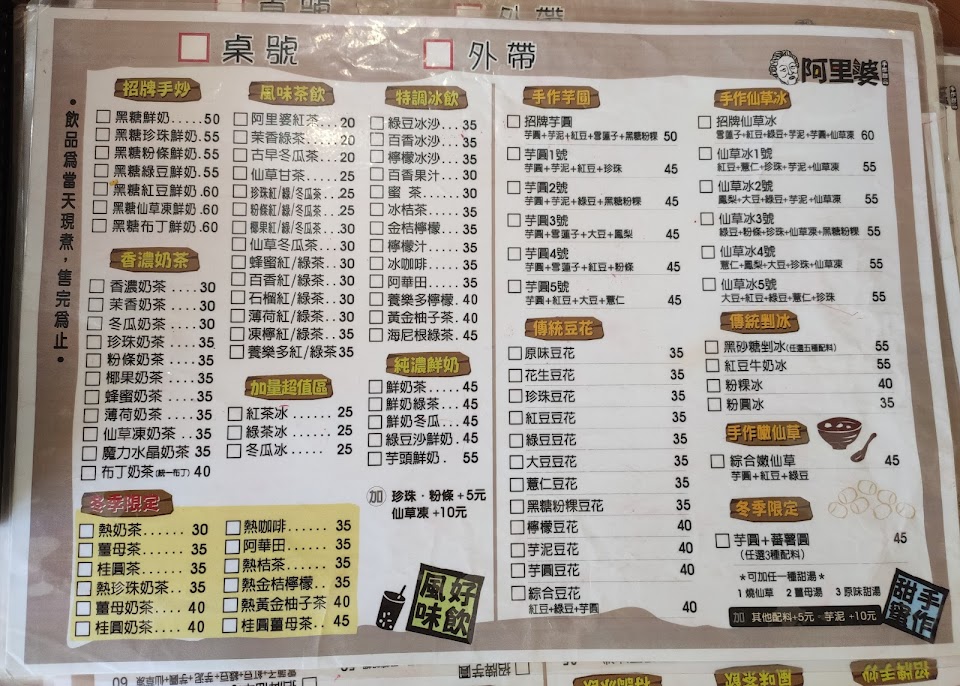 桌號
外帶
阿里婆
•飲品為當天現煮，售完為止•
招牌手炒
黑糖鮮奶.....50
黑糖珍珠鮮奶.55
黑糖粉條鮮奶.55
黑糖綠豆鮮奶.55
黑糖紅豆鮮奶.60
黑糖仙草凍鮮奶.60
黑糖布丁鮮奶.60
香濃奶茶
香濃奶茶....30
茉香奶茶....30
冬瓜奶茶....30
珍珠奶茶....35
粉條奶茶....35
椰果奶茶....35
蜂蜜奶茶....35
薄荷奶茶....35
仙草凍奶茶..35
魔力水晶奶茶 35
布丁奶茶(統一布丁) 40
風味茶飲
阿里婆紅茶...20
茉香綠茶....20
古早冬瓜茶...20
仙草甘茶....25
珍珠紅/綠/冬瓜茶..25
粉條紅/綠/冬瓜茶..25
椰果紅/綠/冬瓜茶..30
仙草冬瓜茶...30
蜂蜜紅/綠茶..30
百香紅/綠茶..30
石榴紅/綠茶..30
薄荷紅/綠茶..30
凍檸紅/綠茶..35
養樂多紅/綠茶35
加量超值區
紅茶冰...... 25
綠茶冰...... 25
冬瓜冰...... 25
特調冰飲
綠豆冰沙...35
百香冰沙...35
檸檬冰沙...35
百香果汁...30
蜜 茶.....30
冰桔茶.....35
金桔檸檬...30
檸檬汁.....35
冰咖啡.....35
阿華田.....35
養樂多檸檬.40
黃金柚子茶.40
海尼根綠茶.45
純濃鮮奶
鮮奶茶....45
鮮奶綠茶...45
鮮奶冬瓜...45
綠豆沙鮮奶.45
芋頭鮮奶. 55
加 珍珠・粉條+5元
仙草凍+10元
冬季限定
熱奶茶...... 30
薑母茶...... 35
桂圓茶...... 35
熱珍珠奶茶.. 35
薑母奶茶.... 40
桂圓奶茶.... 40
熱咖啡...... 35
阿華田...... 35
熱桔茶...... 35
熱金桔檸檬.. 35
熱黃金柚子茶 40
桂圓薑母茶.. 45
好飲風味
手作芋圓
招牌芋圓
芋圓+芋泥+紅豆+雪蓮子+黑糖粉粿 50
芋圓1號
芋圓+芋泥+紅豆+珍珠 45
芋圓2號
芋圓+芋泥+綠豆+黑糖粉粿 45
芋圓3號
芋圓+雪蓮子+大豆+鳳梨 45
芋圓4號
芋圓+雪蓮子+紅豆+粉條 45
芋圓5號
芋圓+紅豆+大豆+薏仁 45
傳統豆花
原味豆花 35
花生豆花 35
珍珠豆花 35
紅豆豆花 35
綠豆豆花 35
大豆豆花 35
薏仁豆花 35
黑糖粉粿豆花 35
檸檬豆花 40
芋泥豆花 40
芋圓豆花 40
綜合豆花
紅豆+綠豆+芋圓 40
手作仙草冰
招牌仙草冰
雪蓮子+紅豆+綠豆+芋泥+芋圓+仙草凍 60
仙草冰1號
紅豆+薏仁+珍珠+芋泥+仙草凍 55
仙草冰2號
鳳梨+大豆+綠豆+芋泥+仙草凍 55
仙草冰3號
綠豆+粉條+珍珠+仙草凍+黑糖粉粿 55
仙草冰4號
薏仁+鳳梨+大豆+珍珠+仙草凍 55
仙草冰5號
大豆+紅豆+綠豆+薏仁+珍珠 55
傳統剉冰
黑砂糖剉冰(任選五種配料) 55
紅豆牛奶冰 55
粉粿冰 40
粉圓冰 35
手作嫩仙草
綜合嫩仙草 45
芋圓+紅豆+綠豆
冬季限定
芋圓+蕃薯圓 45
(任選3種配料)
*可加任一種甜湯*
1 燒仙草 2 薑母湯 3 原味甜湯
加 其他配料+5元 芋泥+10元
手作甜蜜